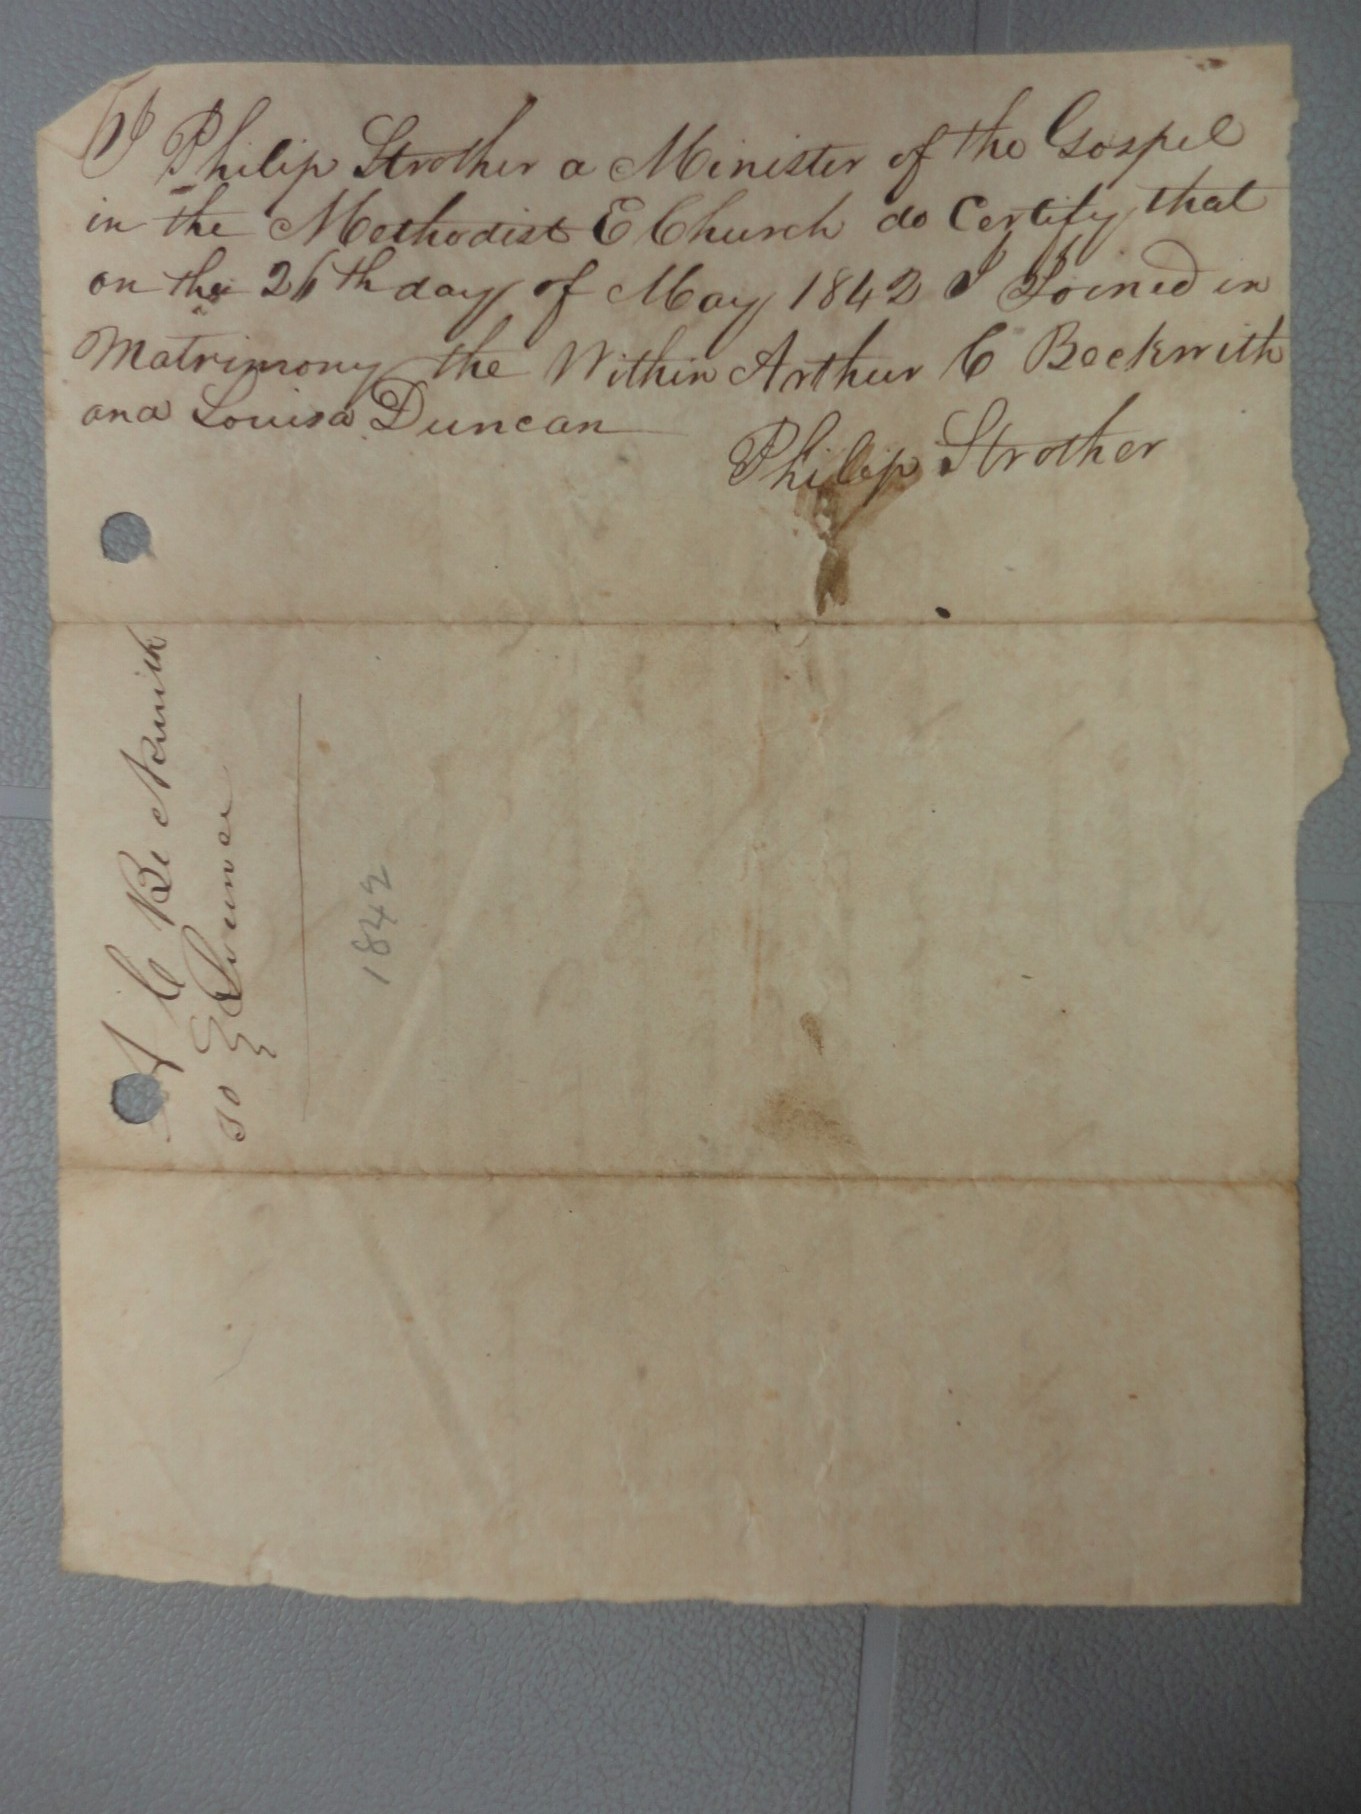 I Philip Strother a Minister of the Gospel
in the Methodist E Church do Certify that
on the 26th day of May 1842 I Joined in
Matrimony the Within Arthur C Beckwith
and Louisa Duncan
Philip Strother
A C Beckwith
to License
1842